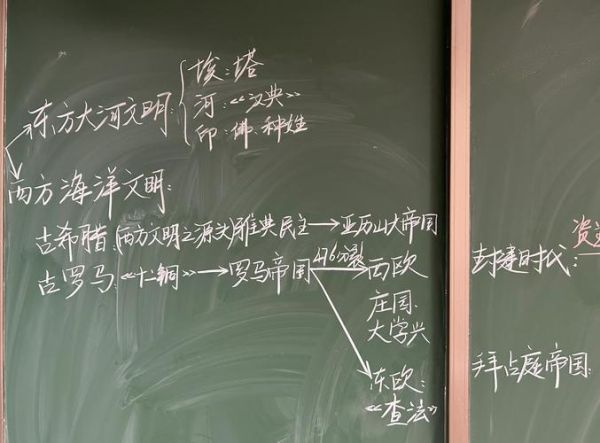 东方大河文明:
埃:塔
河:《汉典》
印:佛.种姓
西方海洋文明:
古希腊:(西方文明之源头)雅典民主→亚历山大帝国
古罗马:《十二铜》→罗马帝国 476分裂 西欧
庄国.
大学兴
东欧:
《查法》
资
封建时代:
拜占庭帝国: